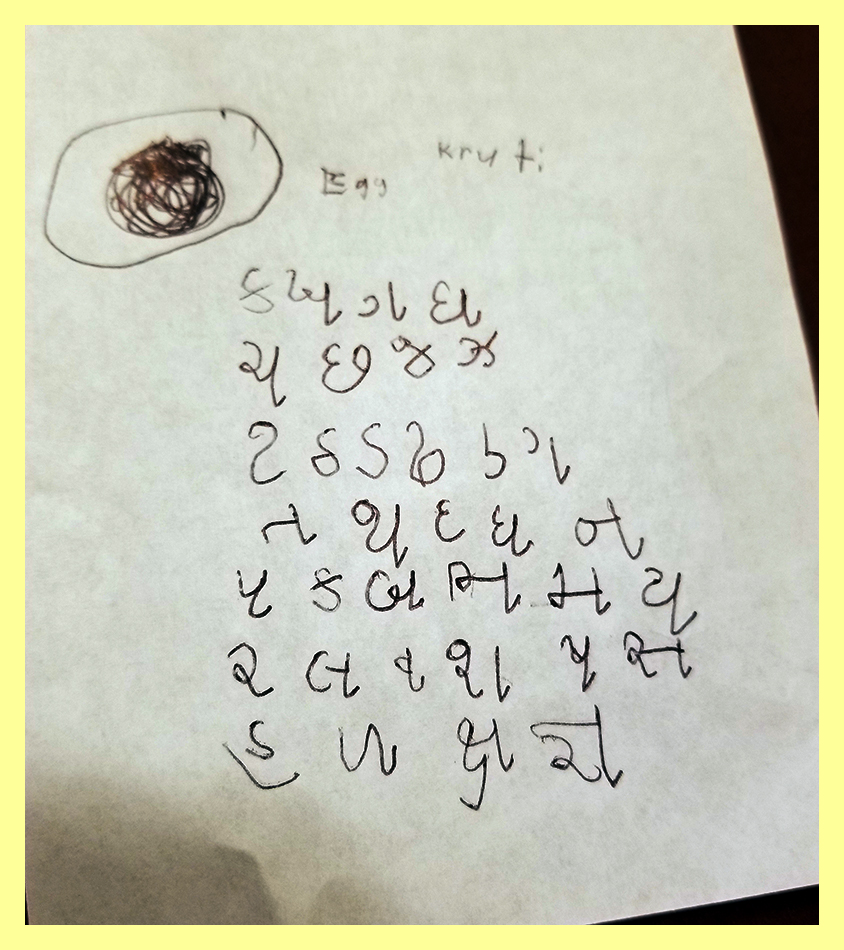 Kruti
Egg
ક ખ ગ ઘ
ચ છ જ ઝ
ટ ઠ ડ ઢ ણ
ત થ દ ધ ન
પ ફ બ ભ મ ય
ર લ વ શ ષ સ
હ ળ ક્ષ જ્ઞ